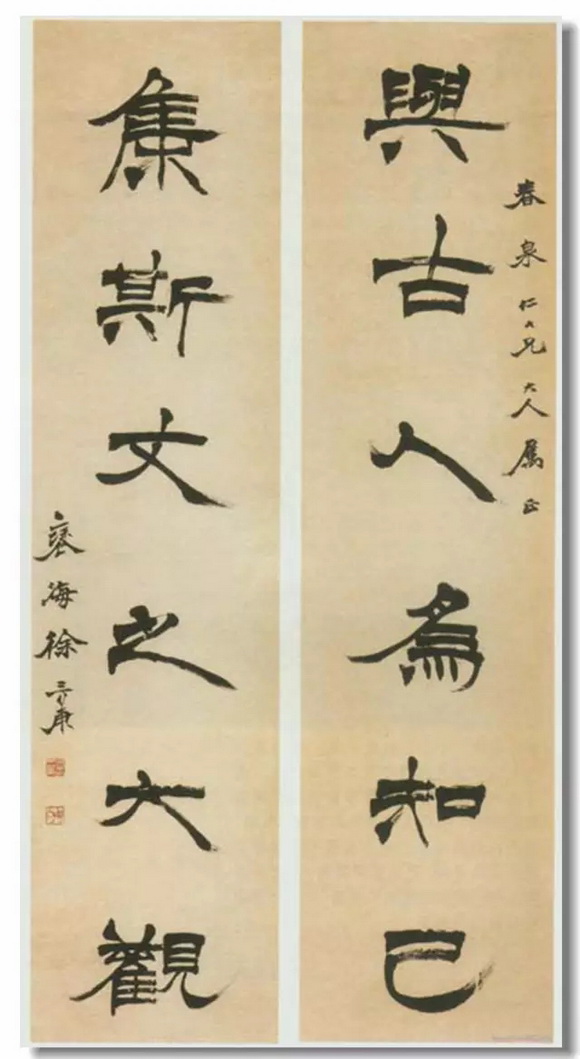 春泉仁大兄大人屬正
與古人為知己
集斯文之大觀
褎海徐三庚